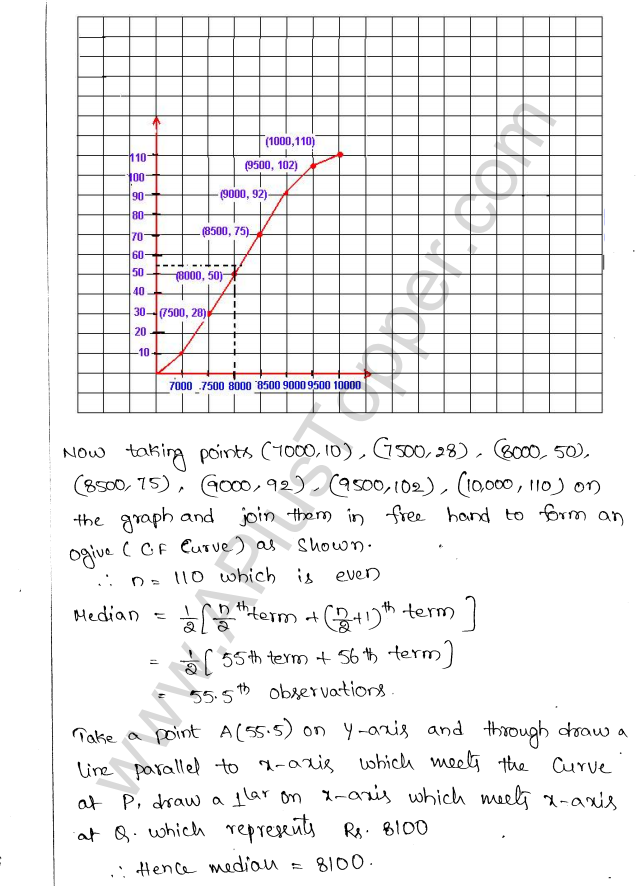 (1000,110)
110
(9500, 102)
100
90
(9000, 92)
80
(8500, 75)
70
60
50
(8000, 50)
40
30
(7500, 28)
20
10
7000 7500 8000 8500 9000 9500 10000
Now taking points (7000,10), (7500,28), (8000,50),
(8500,75), (9000,92), (9500,102), (10,000,110) on
the graph and join them in free hand to form an
ogive (C.F Curve) as shown.
∴ n = 110 which is even
Median = 1/2 [n/2 th term + (n/2+1)th term]
= 1/2 [55th term + 56th term]
= 55.5th observations.
Take a point A(55.5) on y-axis and through draw a
line parallel to x-axis which meets the curve
at P, draw a ⊥lar on x-axis which meets x-axis
at Q. which represents Rs. 8100
∴ Hence median = 8100.
www.APlusTopper.com